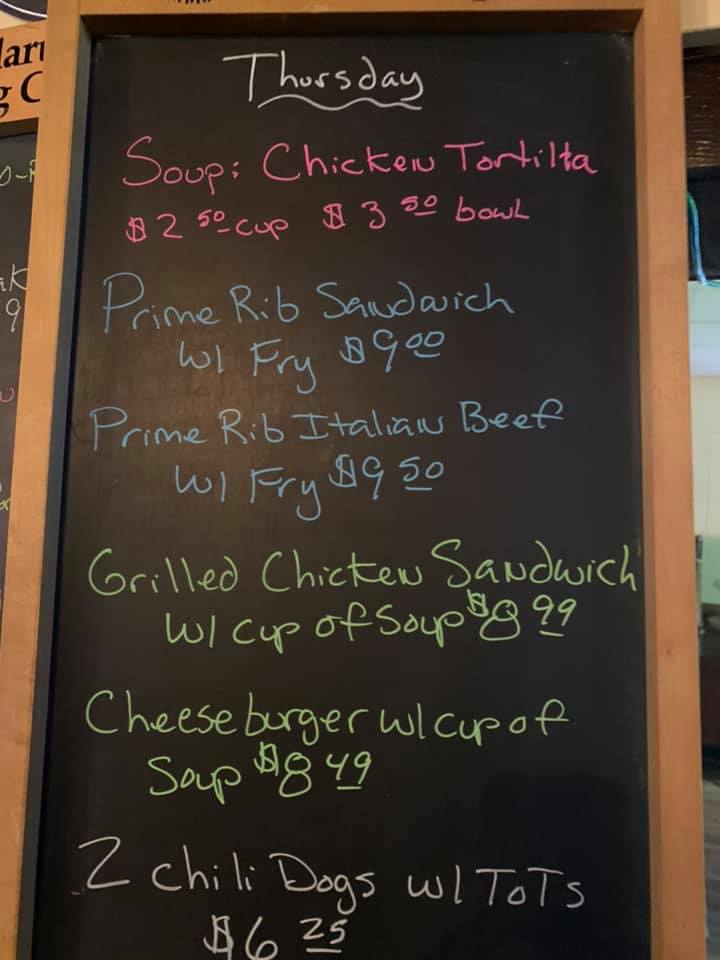 Thursday
Soup: Chicken Tortilla
$2 50 cup $3 50 bowl
Prime Rib Sandwich
w/ Fry $9 00
Prime Rib Italian Beef
w/ Fry $9 50
Grilled Chicken Sandwich
w/ cup of Soup $8 99
Cheeseburger w/ cup of
Soup $8 49
2 Chili Dogs w/ ToTs
$6 25